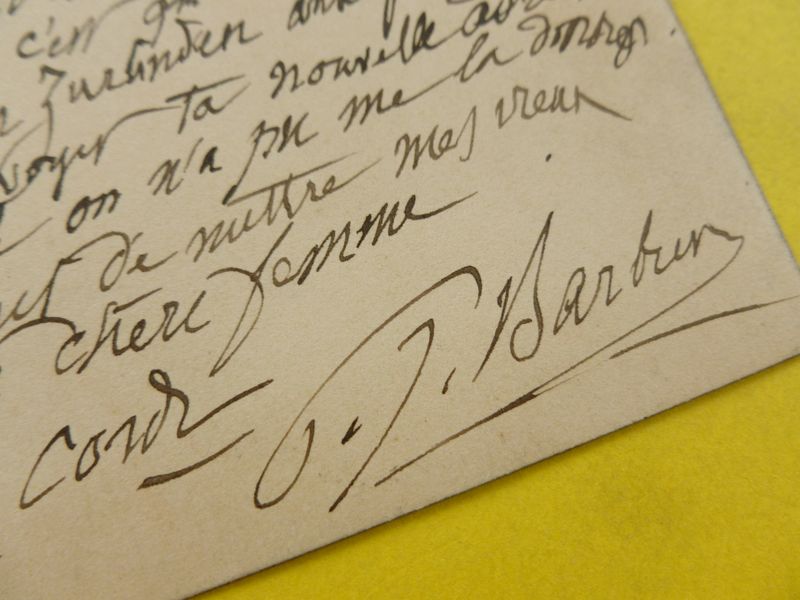 c'en
Zurlinden
ta nouvelle
on n'a pu me la donner.
de mettre mes vieux
chère femme
Cordt
P. J. Barbier